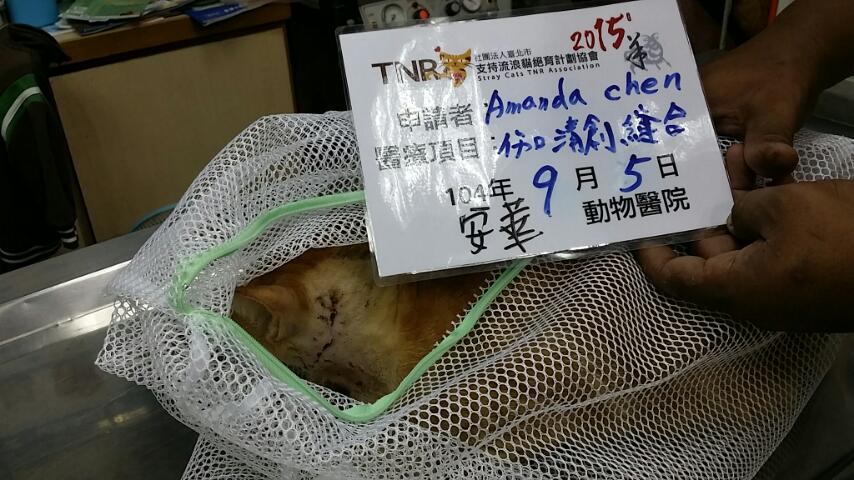 2015'
TNR 社團法人臺北市
支持流浪貓絕育計劃協會
Stray Cats TNR Association
申請者:Amanda chen
醫療項目:伤口清創縫合
104年 9 月 5 日
安華 動物醫院